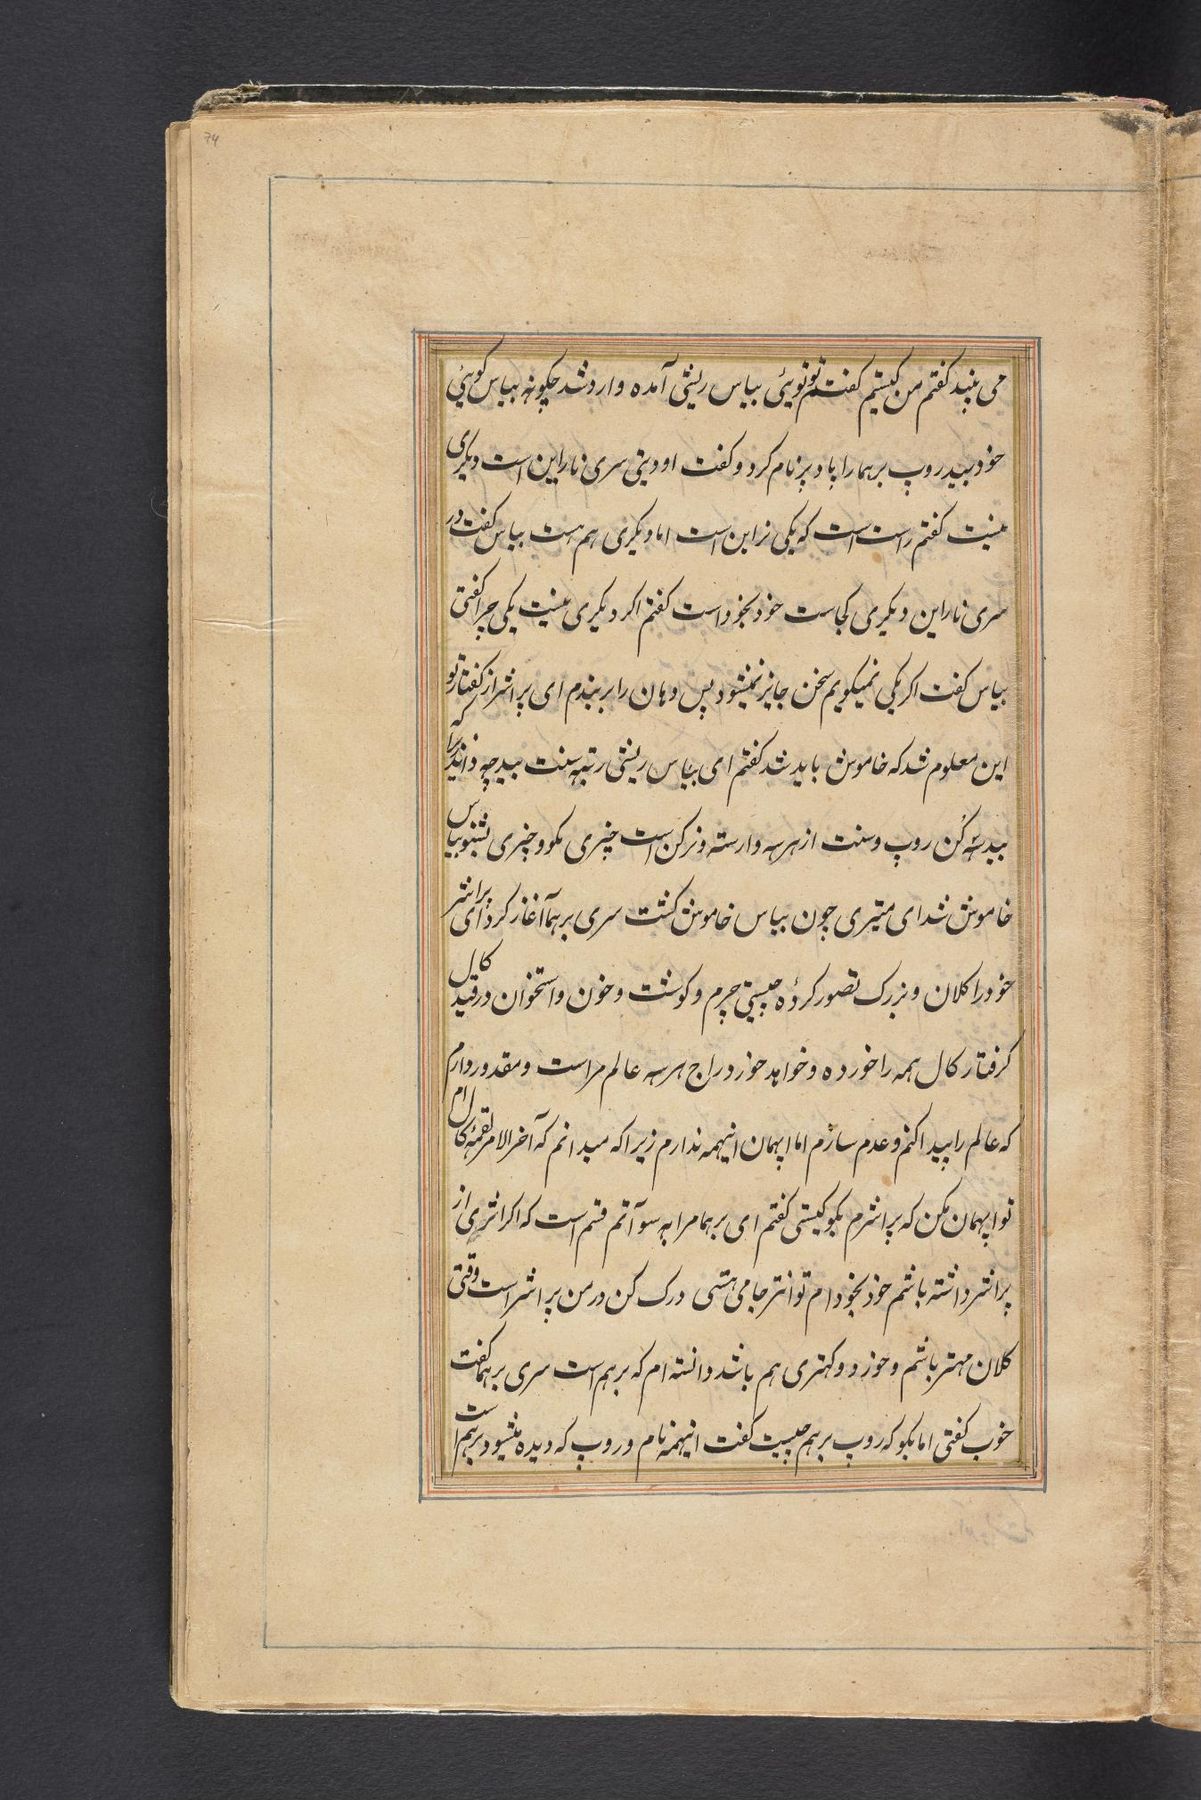 74
می بیند کفتم من کیستم کفت تو توئی بیاس ریشی آمده وارد شد چکونه بیاس کوئی
خود بید روپ برهما را پاد پرنام کرد و کفت اودیتی سری ناراین است دیکری
نیست کفتم راست است که یکی نراین است اما دیکری هم هست بیاس کفت در
سری ناراین دیکری کجاست خود بخود است کفتم اکر دیکری نیست یکی چرا کفتی
بیاس کفت اکر یکی نمیکویم سخن جایز نمیشود پس دهان را بر بندم ای پراشر از کفتار تو
این معلوم شد که خاموش باید شد کفتم ای بیاس ریشی رتبه سنت بید چه داند که
بید سه کن روپ و سنت از هر سه وارسته و نرکن است چیزی مکو و چیزی بشنو بیاس
خاموش شد ای میتری چون بیاس خاموش کشت سری برهما آغاز کرد ای پراشر
خود را کلان و بزرک تصور کردهٔ چیستی چرم و کوشت و خون و استخوان در قید کال
کرفتار کال همه را خورده و خواهد خورد راج هر سه عالم مراست و مقدور دارم
که عالم را پیدا کنم و عدم سازم اما اپهمان اینهمه ندارم زیرا که میدانم که آخر الامر لقمهٔ کال ام
تو اپهمان مکن که پراشرم بکو کیستی کفتم ای برهما مرا به سو آتم قسم است که اکر اثری از
پراشر داشته باشم خود بخود ام تو انترجامی هستی درک کن در من پراشر است وقتی
کلان مهتر باشم و خورد و کهتری هم باشد دانسته ام که برهم است سری برهما کفت
خوب کفتی اما بکو که روپ برهم چیست کفت اینهمه نام و روپ که دیده میشود برهم است